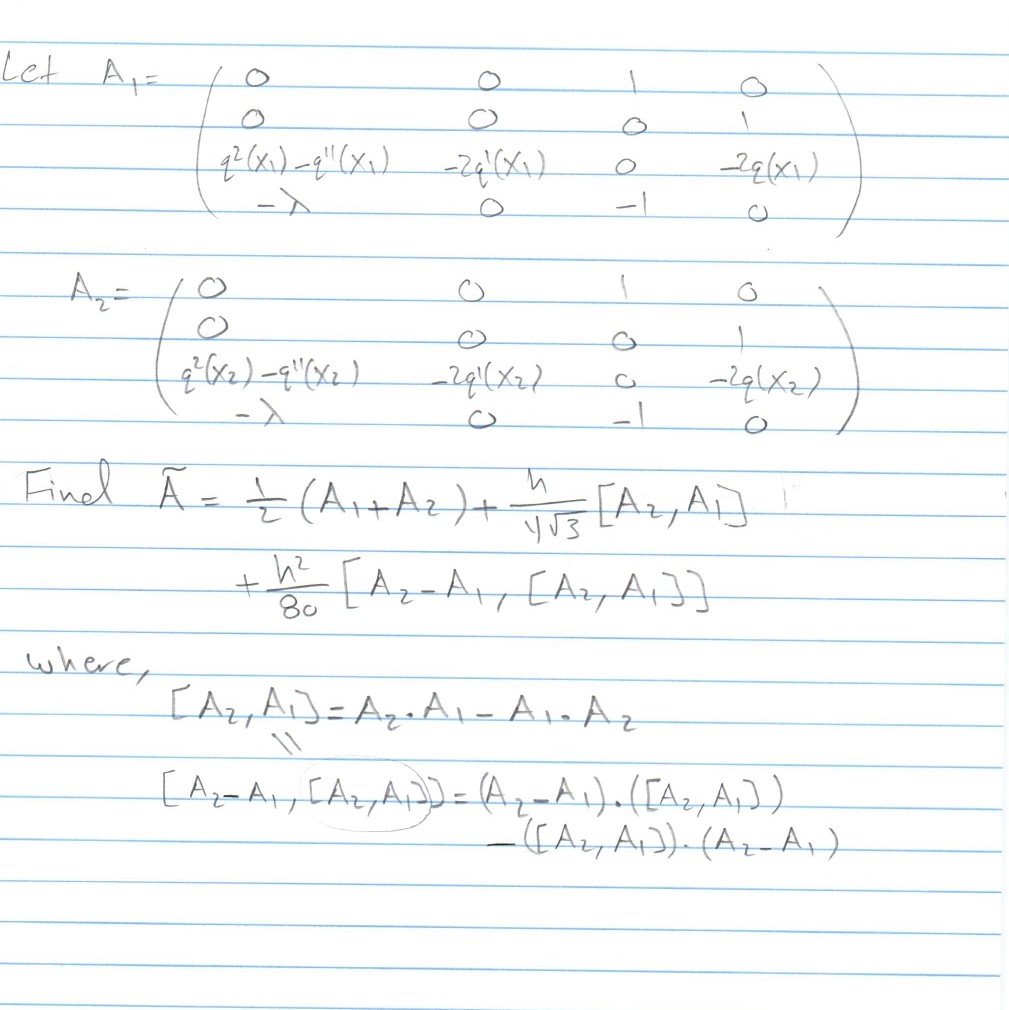 Let A₁ = ( 0 0 1 0
0 0 0 1
q²(x₁)-q''(x₁) -2q'(x₁) 0 -2q(x₁)
-λ 0 -1 0 )
A₂ = ( 0 0 1 0
0 0 0 1
q²(x₂)-q''(x₂) -2q'(x₂) 0 -2q(x₂)
-λ 0 -1 0 )
Find Ã = 1/2 (A₁+A₂) + h/4√3 [A₂, A₁]
+ h²/80 [A₂-A₁, [A₂, A₁]]
where,
[A₂, A₁] = A₂·A₁ - A₁·A₂
\\
[A₂-A₁, [A₂, A₁]] = (A₂-A₁)·([A₂, A₁])
-([A₂, A₁])·(A₂-A₁)